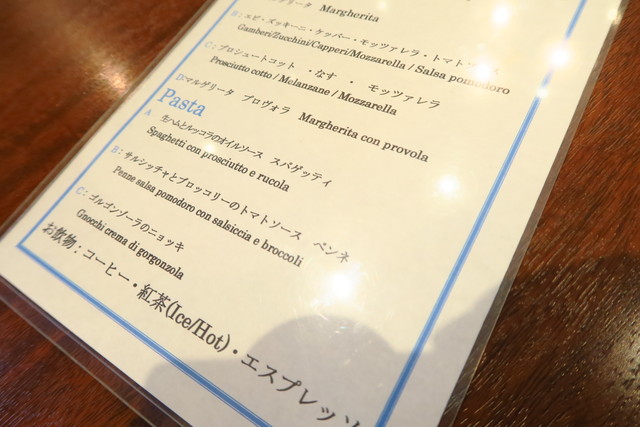 マルゲリータ Margherita
B：エビ・ズッキーニ・ケッパー・モッツァレラ・トマトソース
Gamberi/Zucchini/Capperi/Mozzarella / Salsa pomodoro
C：プロシュートコット ・なす ・ モッツァレラ
Prosciutto cotto / Melanzane / Mozzarella
D:マルゲリータ プロヴォラ Margherita con provola
Pasta
A 生ハムとルッコラのオイルソース スパゲッティ
Spaghetti con prosciutto e rucola
B：サルシッチャとブロッコリーのトマトソース ペンネ
Penne salsa pomodoro con salsiccia e broccoli
C：ゴルゴンゾーラのニョッキ
Gnocchi crema di gorgonzola
お飲物：コーヒー・紅茶(Ice/Hot)・エスプレッソ